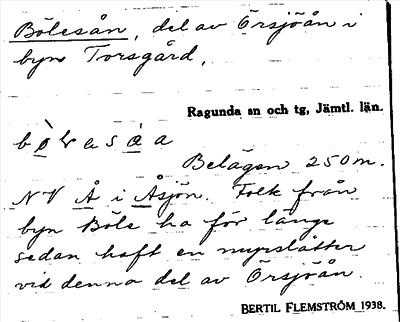 Bölesån, del av Örsjöån i
byn Torsgård.
Ragunda sn och tg, Jämtl. län.
Belägen 250 m.
NV Å i Åsjön. Folk från
byn Böle ha för länge
sedan haft en myrslåtter
vid denna del av Örsjöån.
BERTIL FLEMSTRÖM 1938.